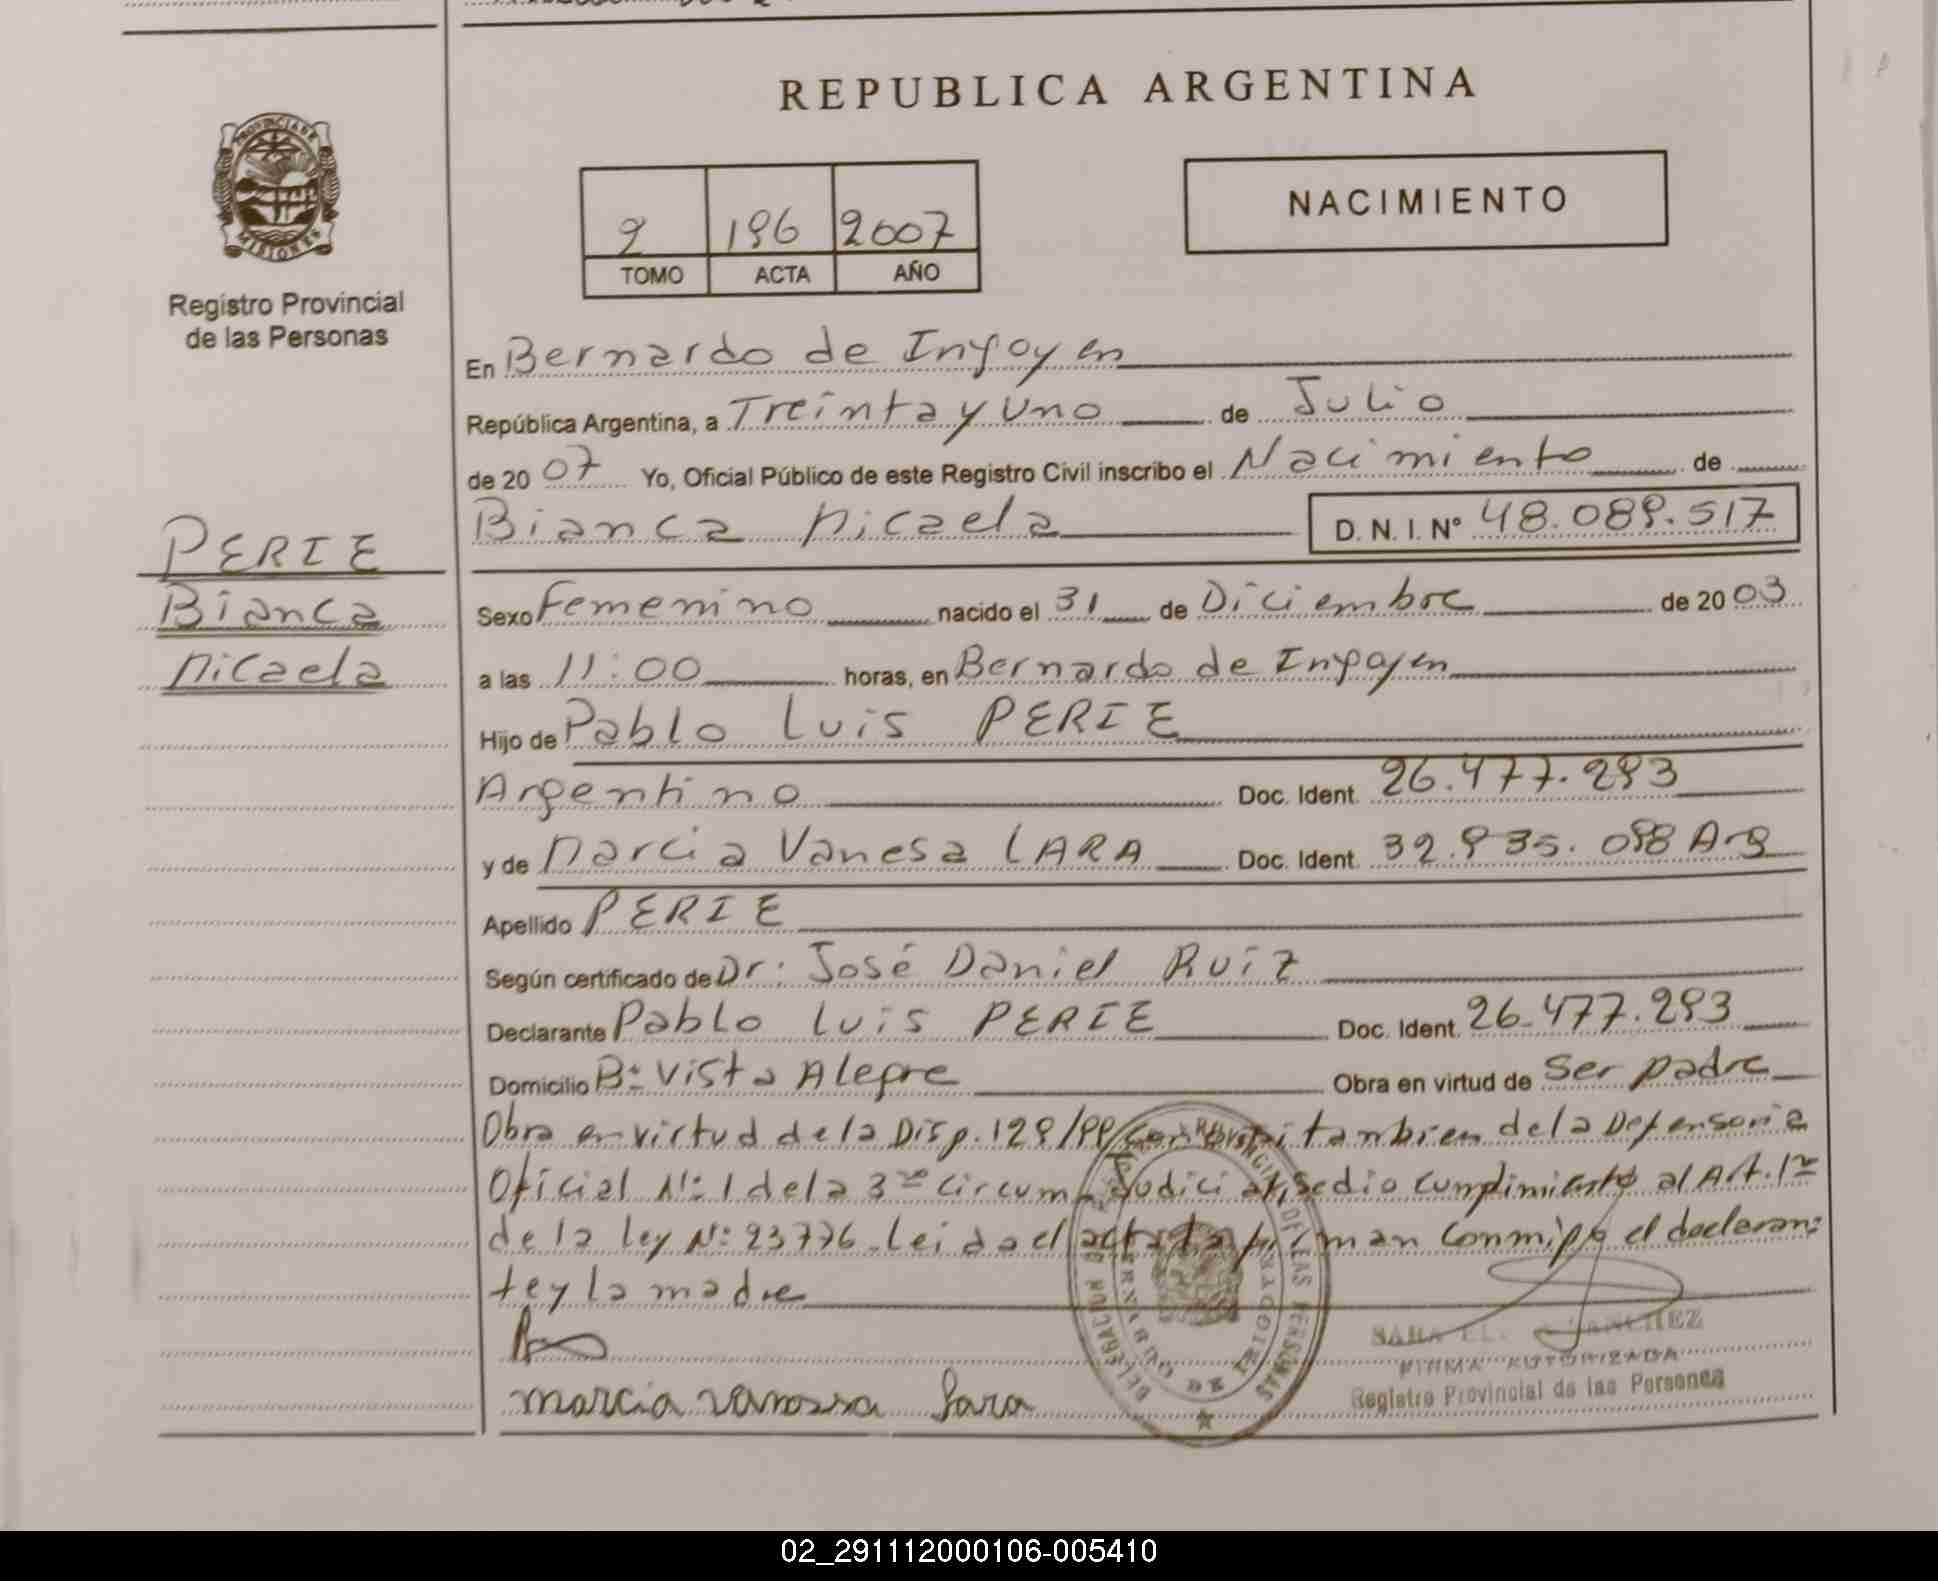 REPUBLICA ARGENTINA
PROVINCIA DE
MISIONES
Registro Provincial
de las Personas
NACIMIENTO
2 196 2007
TOMO ACTA AÑO
En Bernardo de Irigoyen
República Argentina, a Treinta y Uno de Julio
de 20 07 Yo, Oficial Público de este Registro Civil inscribo el Nacimiento de
Bianca Micaela D. N. I. N° 48.089.517
PERIE
Bianca
Micaela
Sexo Femenino nacido el 31 de Diciembre de 20 03
a las 11:00 horas, en Bernardo de Irigoyen
Hijo de Pablo Luis PERIE
Argentino Doc. Ident. 26.477.293
y de Marcia Vanesa LARA Doc. Ident. 32.935.098 Arg
Apellido PERIE
Según certificado de Dr: José Daniel Ruiz
Declarante Pablo Luis PERIE Doc. Ident. 26.477.293
Domicilio B: Vista Alegre Obra en virtud de Ser padre
Obra en virtud de la Disp. 129/ tambien de la Defensoria
Oficial N: 1 de la 3ra Circum. Judicial, se dio cumplimiento al Art. 1ro
de la ley N: 23776. Leida el acta la firman conmigo el declaran-
te y la madre
marcia vanessa Lara
SANCHEZ
FIRMA AUTORIZADA
Registro Provincial de las Personas
02_291112000106-005410